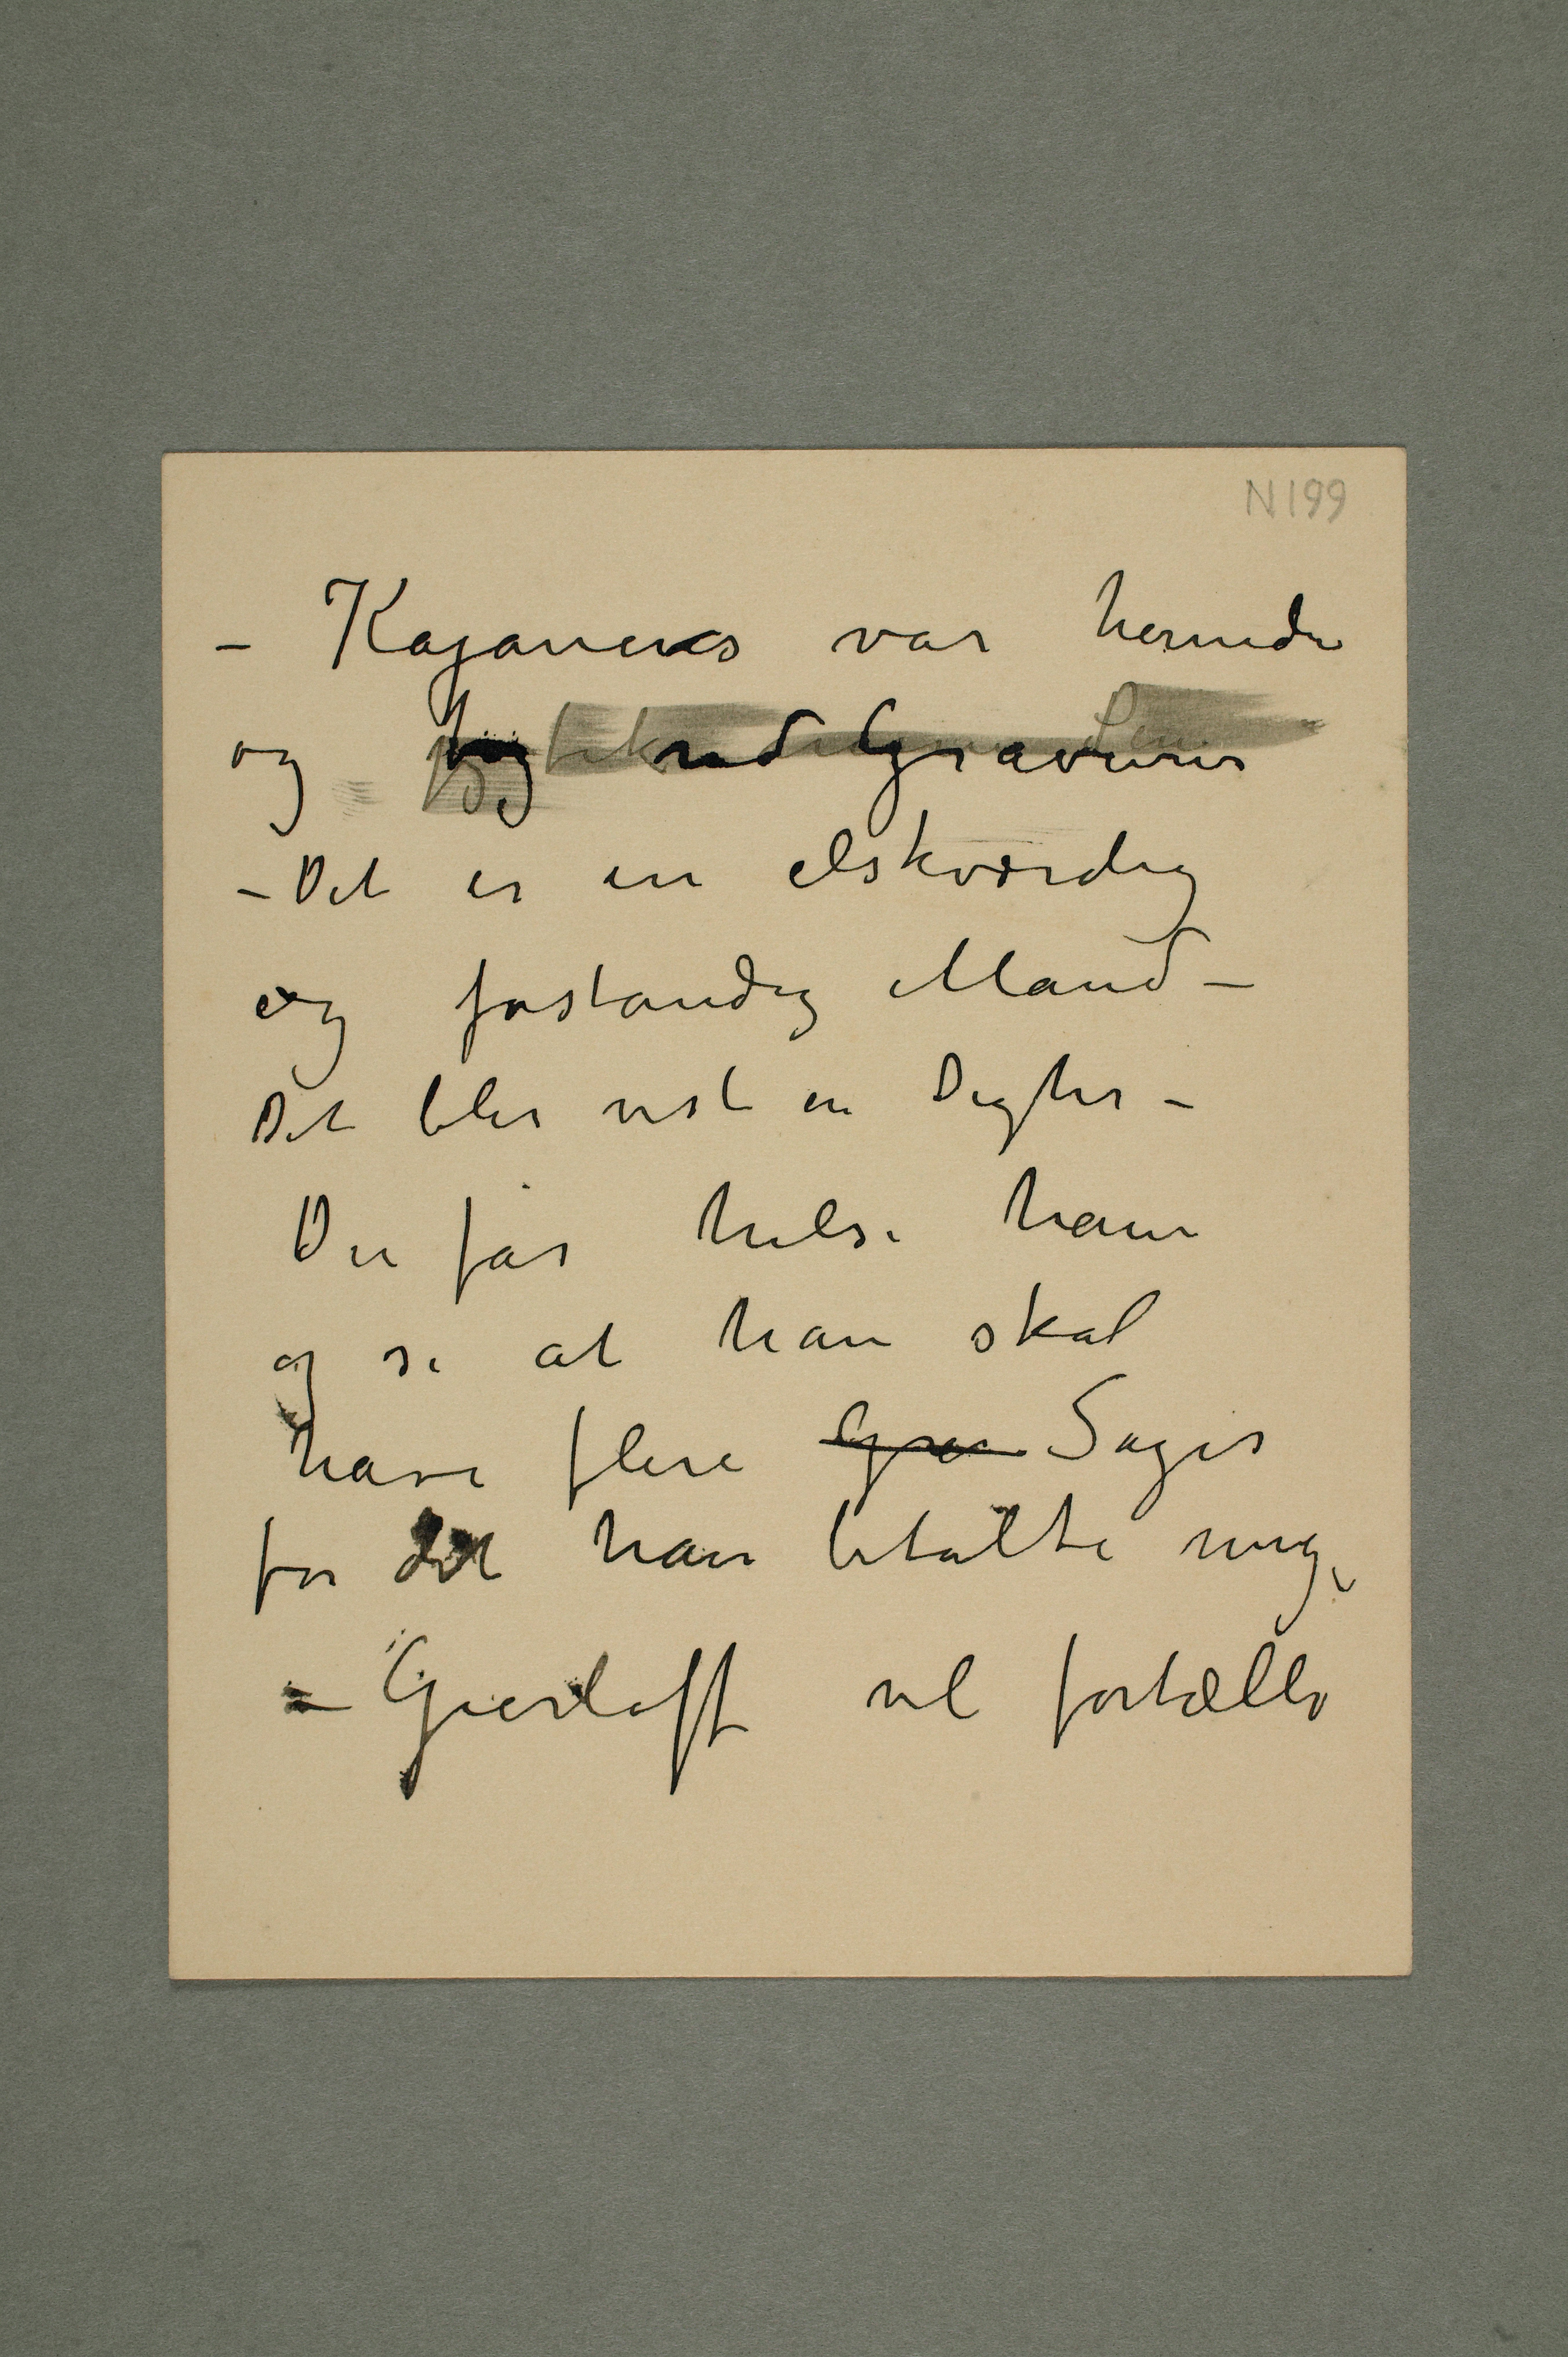 N 199
– Kajanerus var hernede
og tog endel Graverer
– Det er en elskværdig
og forstandig Mand –
Det blir vist en Dygter –
Du får hilse ham
og si at han skal
have flere Grav Sager
for det han betalte mig,
– Gierløff vil fortælle